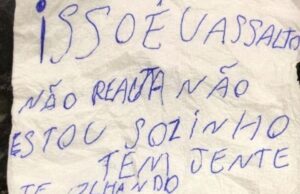 ISSO É UASSALTO
NÃO REAJTA NÃO
ESTOU SOZINHO
TEM JENTE
TE